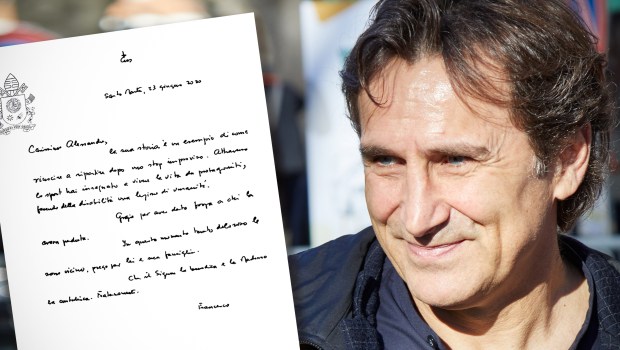 Santa Marta, 23 giugno 2020
Carissimo Alessandro,
la sua storia è un esempio di come
riuscire a ripartire dopo uno stop improvviso. Attraverso
lo sport hai insegnato a vivere la vita da protagonisti,
facendo della disabilità una lezione di umanità.
Grazie per aver dato forza a chi la
aveva perduta.
In questo momento tanto doloroso le
sono vicino, prego per lei e sua famiglia.
Che il Signore la benedica e la Madonna
la custodisca. Fraternamente,
Francesco